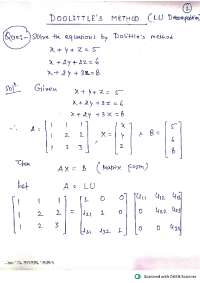 ①
DOOLITTLE'S METHOD (LU Decomposition)
Ques:- Solve the equations by Dolittle's method
x + y + z = 5
x + 2y + 2z = 6
x + 2y + 3z = 8
Sol:- Given
x + y + z = 5
x + 2y + 2z = 6
x + 2y + 3z = 8
∴ A = [1 1 1; 1 2 2; 1 2 3], X = [x; y; z] & B = [5; 6; 8]
Then
AX = B (Matrix form)
Let A = LU
[1 1 1; 1 2 2; 1 2 3] = [1 0 0; l21 1 0; l31 l32 1] [u11 u12 u13; 0 u22 u23; 0 0 u33]
Scanned with OKEN Scanner